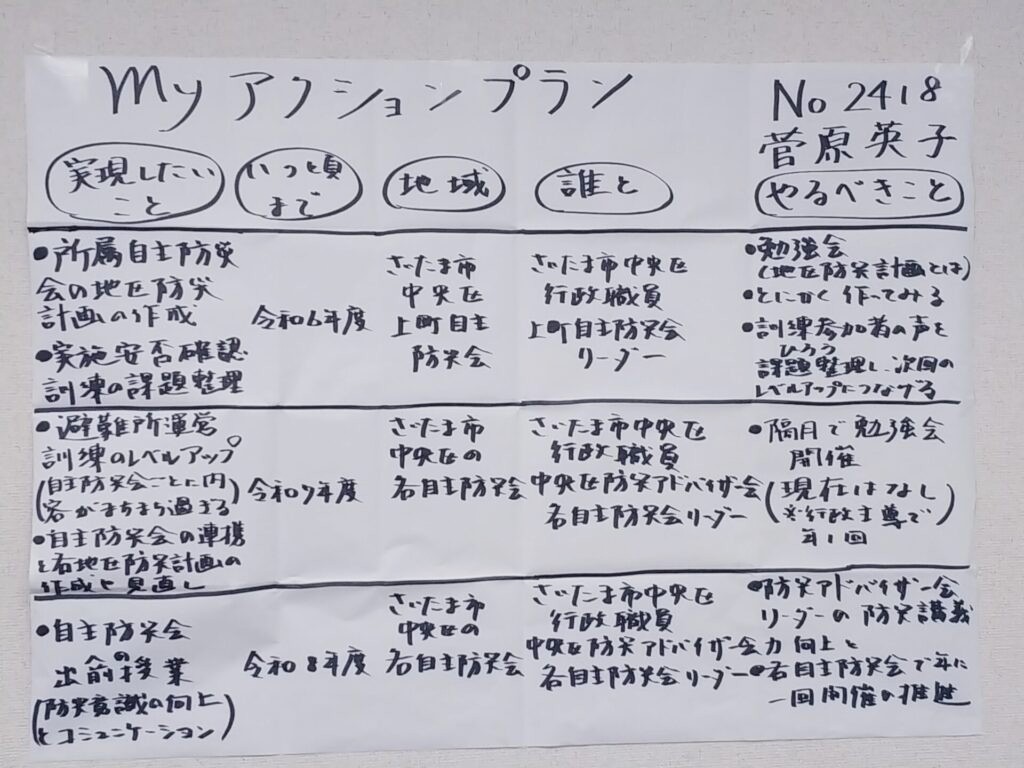 My アクションプラン
No 2418
菅原英子
実現したい
こと
いつ頃
まで
地域
誰と
やるべきこと
●所属自主防災
会の地区防災
計画の作成
●実施安否確認
訓練の課題整理
令和6年度
さいたま市
中央区
上町自主
防災会
さいたま市中央区
行政職員
上町自主防災会
リーダー
●勉強会
(地区防災計画とは)
●とにかく作ってみる
●訓練参加者の声を
ひろう
課題整理し、次回の
レベルアップにつなげる
●避難所運営
訓練のレベルアップ
(自主防災会ごとに内
容がまちまち過ぎる)
●自主防災会の連携
と各地区防災計画の
作成と見直し
令和7年度
さいたま市
中央区の
各自主防災会
さいたま市中央区
行政職員
中央区防災アドバイザー会
各自主防災会リーダー
●隔月で勉強会
開催
(現在はなし
※行政主導で
年1回)
●自主防災会
への
出前授業
(防災意識の向上
とコミュニケーション)
令和8年度
さいたま市
中央区の
各自主防災会
さいたま市中央区
行政職員
中央区防災アドバイザー会
各自主防災会リーダー
●防災アドバイザー会
リーダーの防災講義
力向上と
●各自主防災会で年に
一回開催の推進